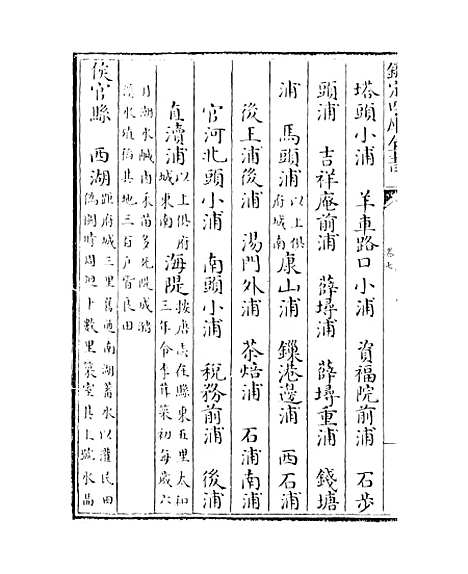 欽定四庫全書
卷七
塔頭小浦 羊車路口小浦 資福院前浦 石步
頭浦 吉祥庵前浦 薛塢浦 薛塢重浦 錢塘
浦 馬頭浦以上俱府城南 康山浦 鏁港邊浦 西石浦
後王浦後浦 湯門外浦 茶焙浦 石浦南浦
官河北頭小浦 南頭小浦 稅務前浦 後浦
直瀆浦以上俱府城東南 海隄按唐志在縣東五里太和三年令李茸築初每歲六
月潮水鹹鹵禾苗多死隄成瀦
溪水殖稻其地三百戶皆良田
侯官縣 西湖距府城三里舊通南湖蓄水以灌民田
偽閩時周廻十數里築室其上號水晶